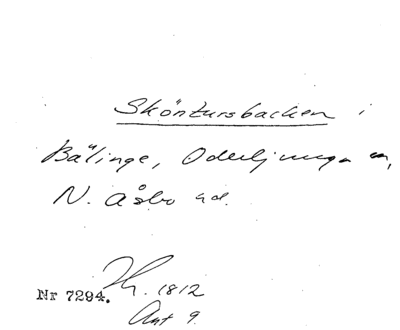 Sköntursbacken i
Bälinge, Oderljunga sn,
N. Åsbo hd.
Nr 7294. Th. 1812
Ant 9.